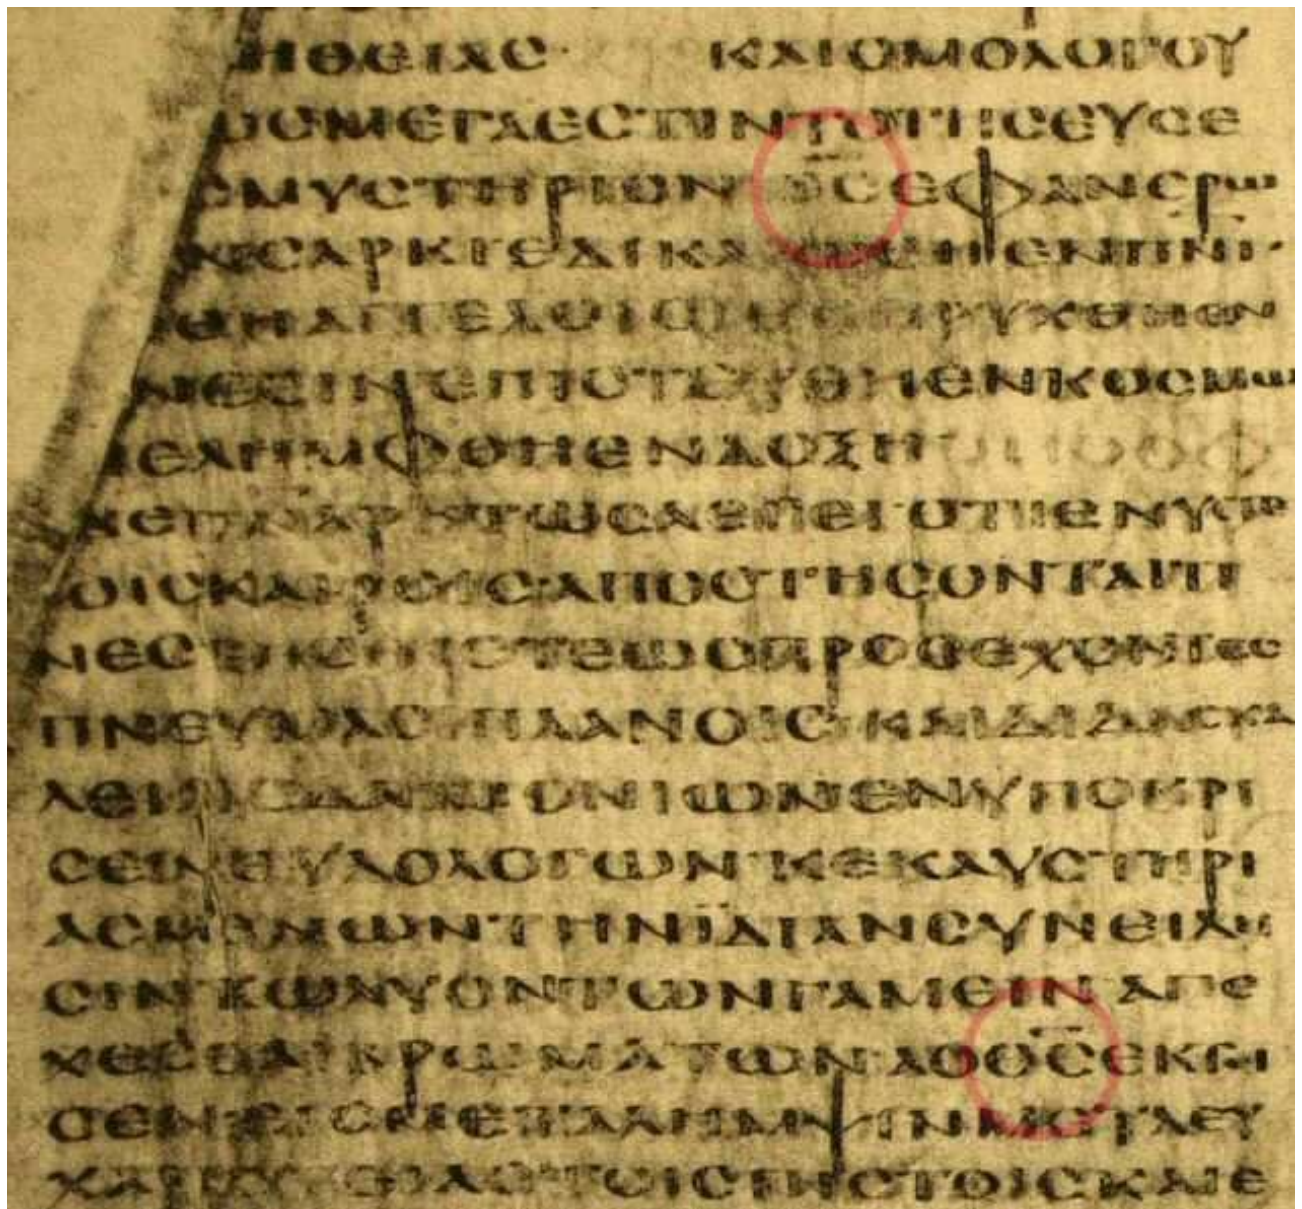 ΗΘΕΙΑϹ· ΚΑΙΟΜΟΛΟΓΟΥ
ΩϹΜΕΓΑΕϹΤΙΝΤΟΤΗϹΕΥϹΕ
ϹΜΥϹΤΗΡΙΟΝΘ̅Ϲ̅ΕΦΑΝΕΡΩ
ΝϹΑΡΚΙΕΔΙΚΑΙΩΘΗΕΝΠ̅Ν̅Ι̅·
ΘΗΑΓΓΕΛΟΙϹΕΚΗΡΥΧΘΗΕΝ
ΝΕϹΙΝΕΠΙϹΤΕΥΘΗΕΝΚΟϹΜΩ
ΝΕΛΗΜΦΘΗΕΝΔΟΞΗ
ΟΙϹΚΑΙΡΟΙϹΑΠΟϹΤΗϹΟΝΤΑΙΤΙ
ΝΕϹΤΗϹΠΙϹΤΕΩϹΠΡΟϹΕΧΟΝΤΕϹ
ΠΝΕΥΜΑϹΙΠΛΑΝΟΙϹΚΑΙΔΙΔΑϹΚΑ
ΛΕΙΑΙϹΔΑΙΜΟΝΙΩΝΕΝΥΠΟΚΡΙ
ϹΕΙΨΕΥΔΟΛΟΓΩΝΚΕΚΑΥϹΤΗΡΙ
ΑϹΜΕΝΩΝΤΗΝΪΔΙΑΝϹΥΝΕΙΔΗ
ϹΙΝΚΩΛΥΟΝΤΩΝΓΑΜΕΙΝΑΠΕ
ΧΕϹΘΑΙΒΡΩΜΑΤΩΝΑΟΘ̅Ϲ̅ΕΚΤΙ
ϹΕΝΕΙϹΜΕΤΑΛΗΜΨΙΝΜΕΤΑΕΥ
ΧΑΡΙϹΤΙΑϹΤΟΙϹΠΙϹΤΟΙϹΚΑΙΕ